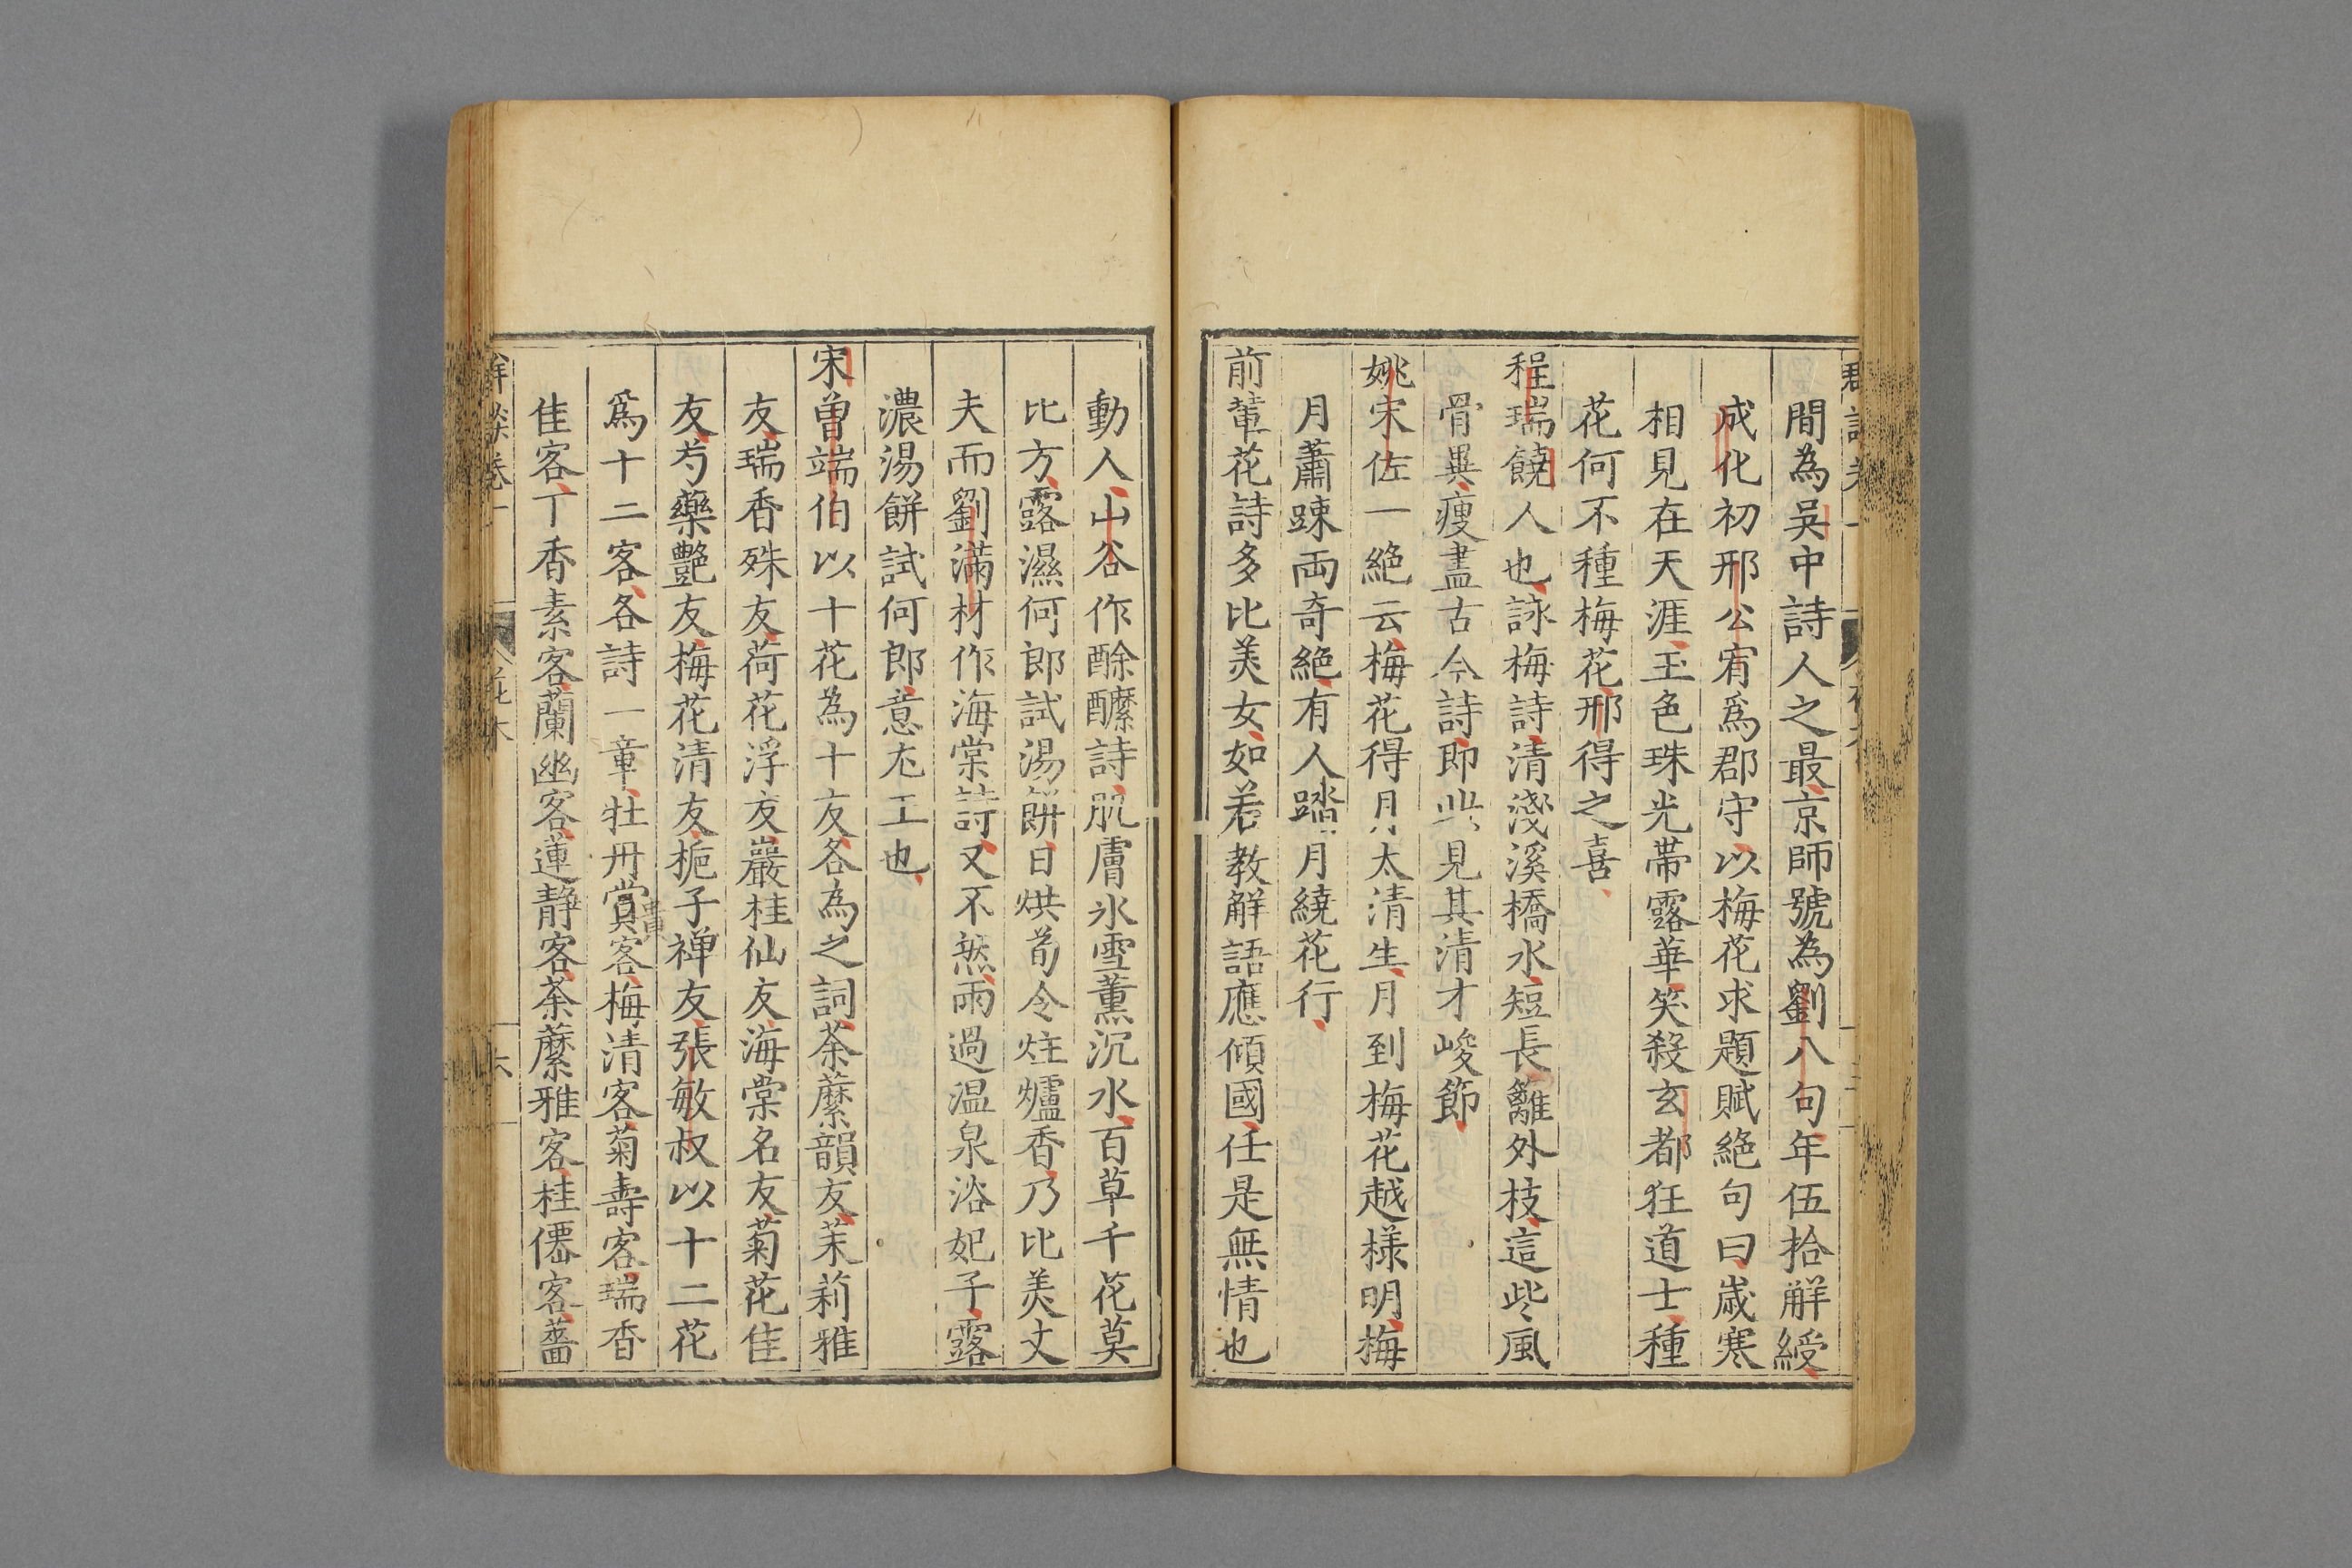 間為吳中詩人之最京師號為劉八句年伍拾解綬
成化初邢公宥爲郡守以梅花求題賦絕句曰歲寒
相見在天涯玉色珠光帶露華笑殺玄都狂道士種
花何不種梅花邢得之喜
程瑞饒人也詠梅詩清淺溪橋水短長籬外枝這些風
骨異瘦盡古今詩即此見其清才峻節
姚宋佐一絕云梅花得月太清生月到梅花越樣明梅
月蕭踈兩奇絕有人踏月繞花行
前輩花詩多比美女如若教解語應傾國任是無情也
動人山谷作酴醾詩肌膚冰雪薰沉水百草千花莫
比方露濕何郎試湯餅日烘荀令炷爐香乃比美丈
夫而劉滿材作海棠詩又不然雨過温泉浴妃子露
濃湯餅試何郎意尤工也
宋曾端伯以十花為十友各為之詞荼蘼韻友茉莉雅
友瑞香殊友荷花浮友巖桂仙友海棠名友菊花佳
友芍藥艷友梅花清友梔子禅友張敏叔以十二花
爲十二客各詩一章牡丹賞客梅清客菊壽客瑞香
佳客丁香素客蘭幽客蓮静客荼蘼雅客桂僊客薔